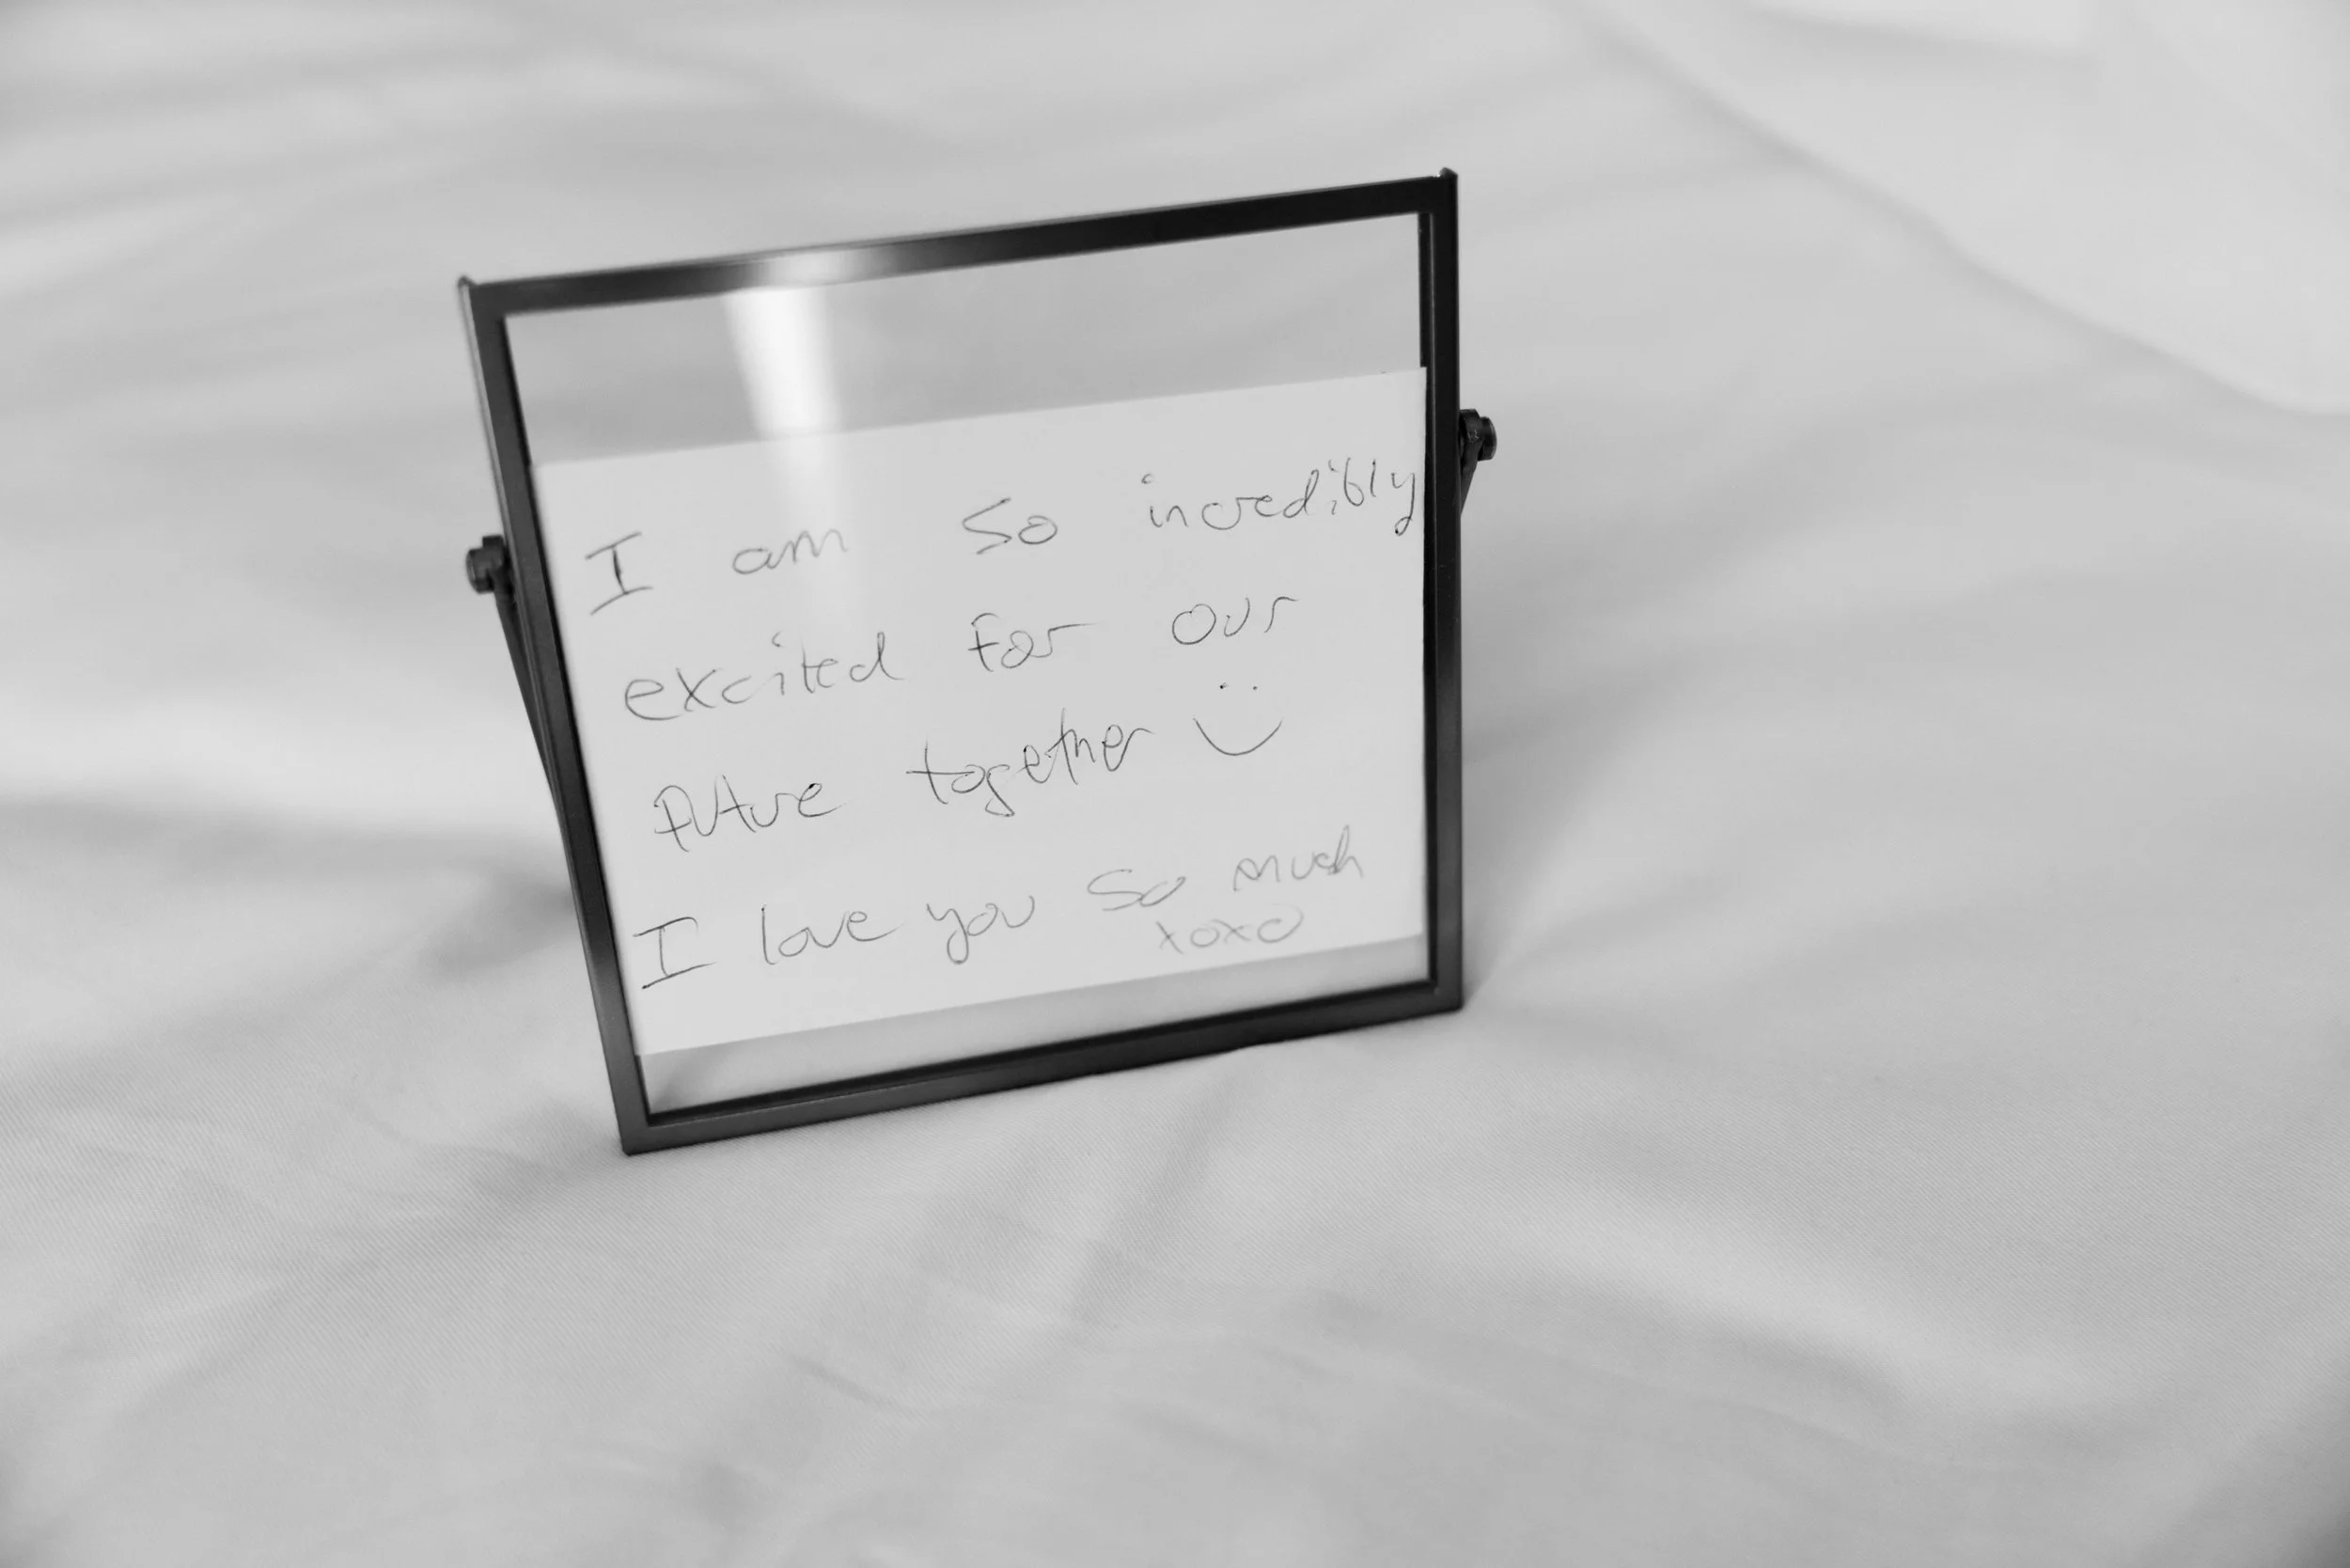 I am so incredibly
excited for our
future together :)
I love you so much
xoxo